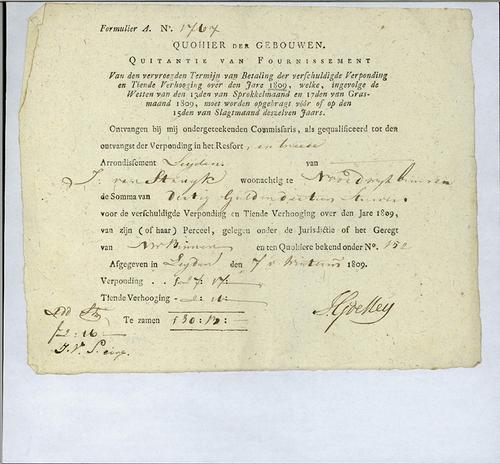 Formulier A. No. 1767
QUOHIER DER GEBOUWEN.
QUITANTIE VAN FOURNISSEMENT
Van den vervroegden Termijn van Betaling der verschuldigde Verponding
en Tiende Verhooging over den Jare 1809, welke, ingevolge de
Wetten van den 13den van Sprokkelmaand en 17den van Gras-
maand 1809, moet worden opgebragt vóór of op den
15den van Slagtmaand deszelven Jaars.
Ontvangen bij mij ondergeteekenden Commisfaris, als gequalificeerd tot den
ontvangst der Verponding in het Resfort,
Arrondisfement Leyden van
J: van Staayk woonachtig te Noordwykbinnen
de Somma van Dertig Guldens
voor de verschuldigde Verponding en Tiende Verhooging over den Jare 1809,
van zijn (of haar) Perceel, gelegen onder de Jurisdictie of het Geregt
van NWBinnen en ten Quohiere bekend onder No. 150
Afgegeven in Leyden den 7 v Winterm 1809.
Verponding . .
Tiende Verhooging 2: 16:
Te zamen ƒ30: